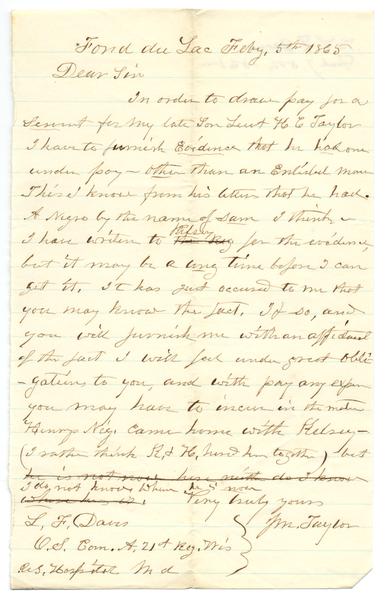 Fond du Lac Feby, 5th 1865
Dear Sir
In order to draw pay for a
Servent for My late Son Lieut H. C. Taylor
I have to furnish Evidence that he had one
under pay – other than an Enlisted man
This I know from his letters that he had.
A Negro by the name of Sam I think –
I have writen to Kelsey for the evidence,
but it may be a long time before I can
get it. It has just occured to me that
you may know the fact. If so, and
you will furnish me with an affidavit
of the fact I will feel under great Obli-
gation, to you, and will pay any expen
you may have to incur in the matter
Henrys Nig. came home with Kelsey –
(I rather think K, & H, hired him together) but
he is not now here neither do I know
I do not know whare he is now
whare he is.
Very truly yours
L. F. Davis
Jm. Taylor
O.S. Com. A, 21st Reg. Wis
U.S. Hospital Md